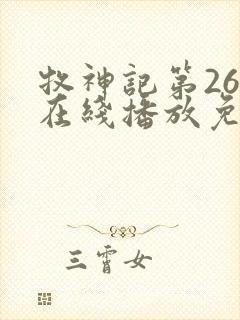 牧神記第26
在綫播放免
三霄女